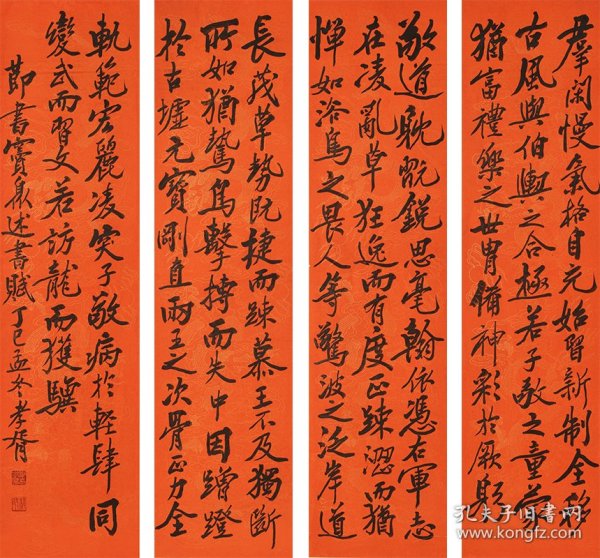 羣閑慢氣格自充始習新制全移
古風與伯輿之合極若子敬之童蒙
猶富禮樂之世胄備神彩於厥躬
敬道耽翫銳思毫翰依憑右軍志
在凌亂草狂逸而有度正踈澀而猶
憚如浴鳥之畏人等驚波之泛岸道
長茂草勢既捷而踈慕王不及獨斷
所如猶鷙鳥擊搏而失中因蹭蹬
於古墟元寶剛直兩王之次骨正力全
軌範宏麗凌突子敬病於輕肆同
變武而習文若訪龍而獲驥
節書竇臮述書賦 丁巳孟冬孝胥
孔夫子旧书网
www.kongfz.com